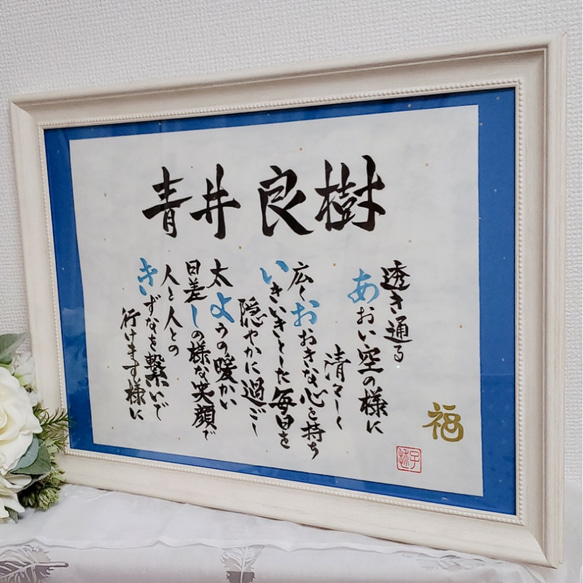 青井良樹
透き通る
あおい空の様に
清々しく
広くおおきな心を持ち
いきいきとした毎日を
穏やかに過ごし
太ようの暖かい
日差しの様な笑顔で
人と人との
きずなを繋いで
行けます様に
福